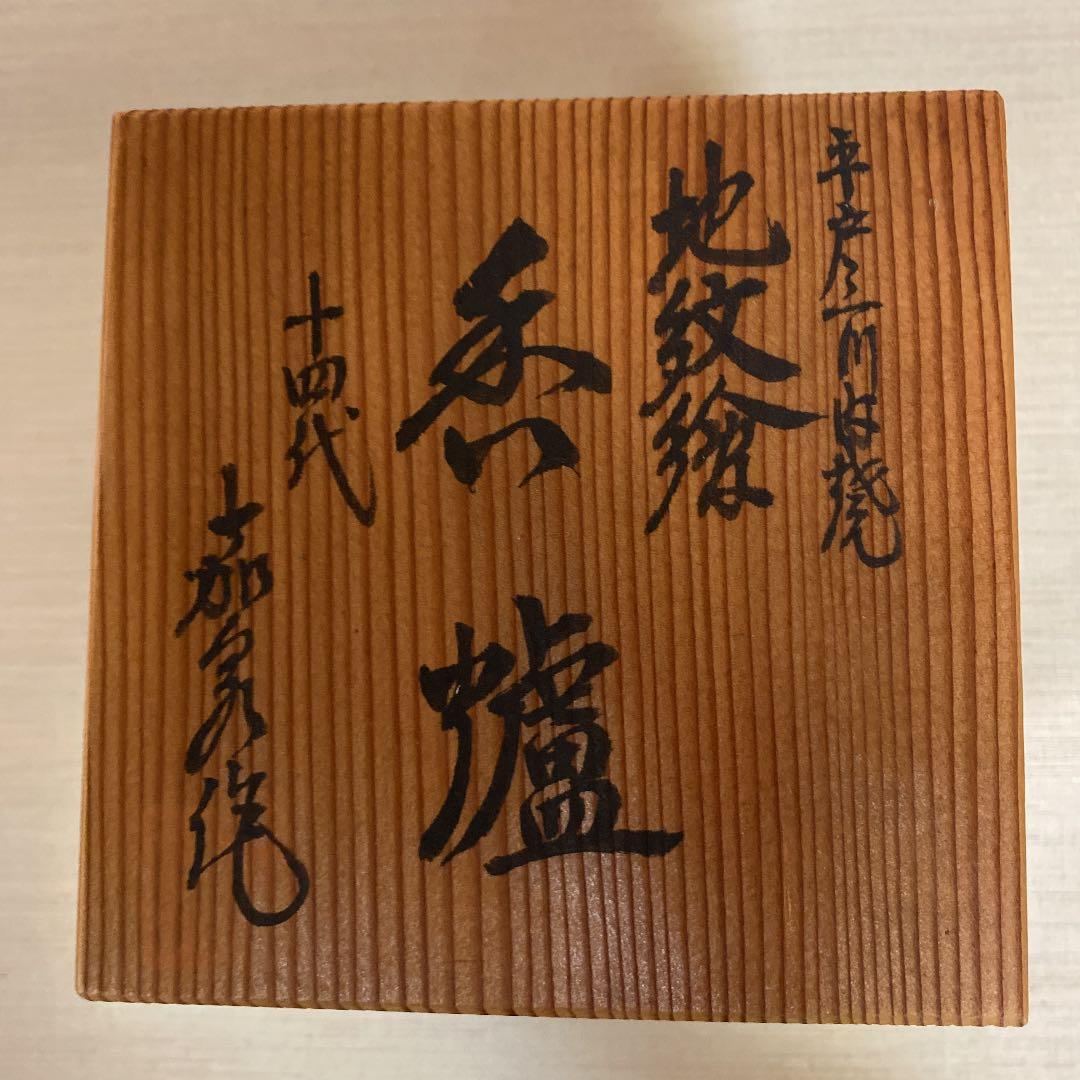 平戸三川内焼
地紋繪
香爐
十四代
嘉泉作